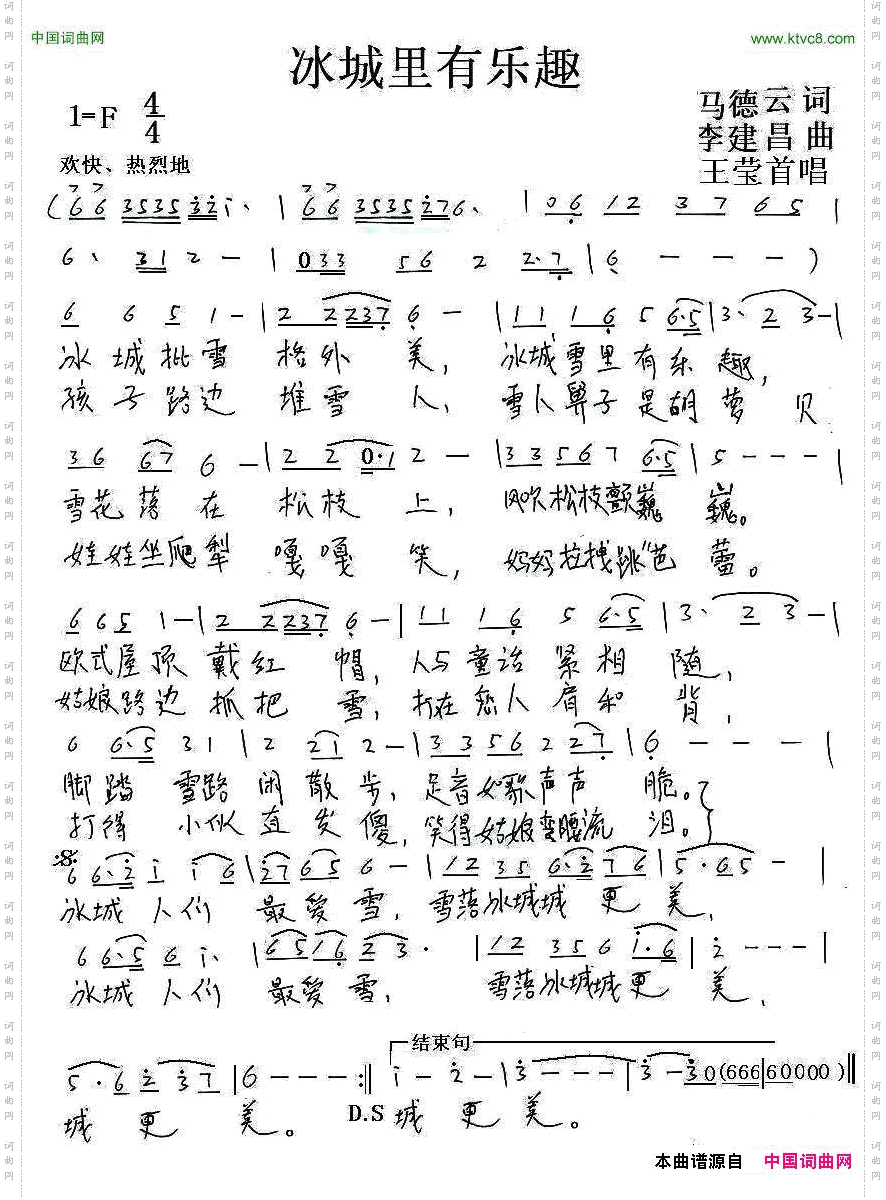 中国词曲网
www.ktvc8.com
冰城里有乐趣
1=F 4/4
马德云词
李建昌曲
王莹首唱
欢快、热烈地
(66 3535 32i、|66 3535 276、|06 12 37 65|
6、 31 2 -|033 56 2 2·7|6 - - -)
6 6 5 1-|2 2237 6 -|11 16 5 6·5|3、2 3-|
冰城批雪格外美，冰城雪里有乐趣，
孩子路边堆雪人，雪人鼻子是胡萝贝
36 67 6 -|2 2 0·1 2 -|33567 6·5|5 - - -|
雪花落在松枝上，风吹松枝颤巍巍。
娃娃坐爬犁嘎嘎笑，妈妈拉拽跳"芭蕾。
6 65 1-|2 2237 6 -|11 16 5 6·5|3、2 3-|
欧式屋顶戴红帽，人与童话紧相随，
姑娘路边抓把雪，打在恋人肩和背，
6 6·5 31|2 21 2-|3356 2 27|6 - - -|
脚踏雪路闲散步，足音如歌声声脆。
打得小伙直发傻，笑得姑娘弯腰流泪。
6 6·2 i i6|27 65 6 -|12 35 6·2 76|5·65 -|
冰城人们最爱雪，雪落冰城城更美，
6 6·5 6 i、|65 16 2 3·|12 356 i·6|2 - - -|
冰城人们最爱雪，雪落冰城城更美，
结束句
5·6 2 37|6 - - -:|| i - 2 -|3 - - - -|3 -30(666|60000)||
城更美。 D.S 城更美。
本曲谱源自 中国词曲网